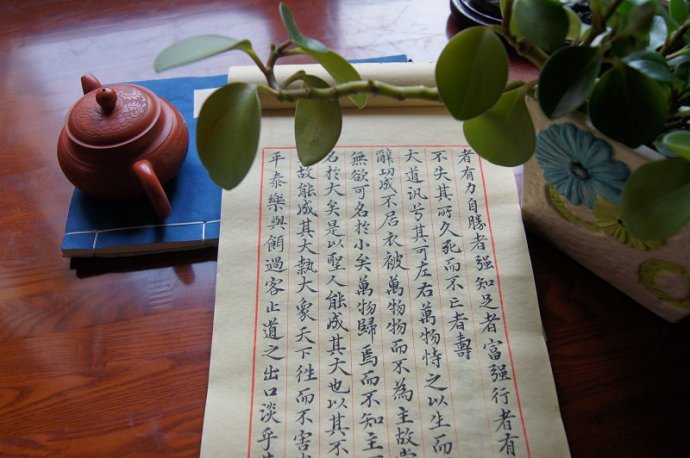 者有力自勝者强知足者富强行者有
不失其所久死而不亡者壽
大道汎兮其可左右萬物恃之以生而
辭功成不居衣被萬物物而不為主故
無欲可名於小矣萬物歸焉而不知主
名於大矣是以聖人能成其大也以其不
故能成其大執大象天下往而不害
平泰樂與餌過客止道之出口淡乎